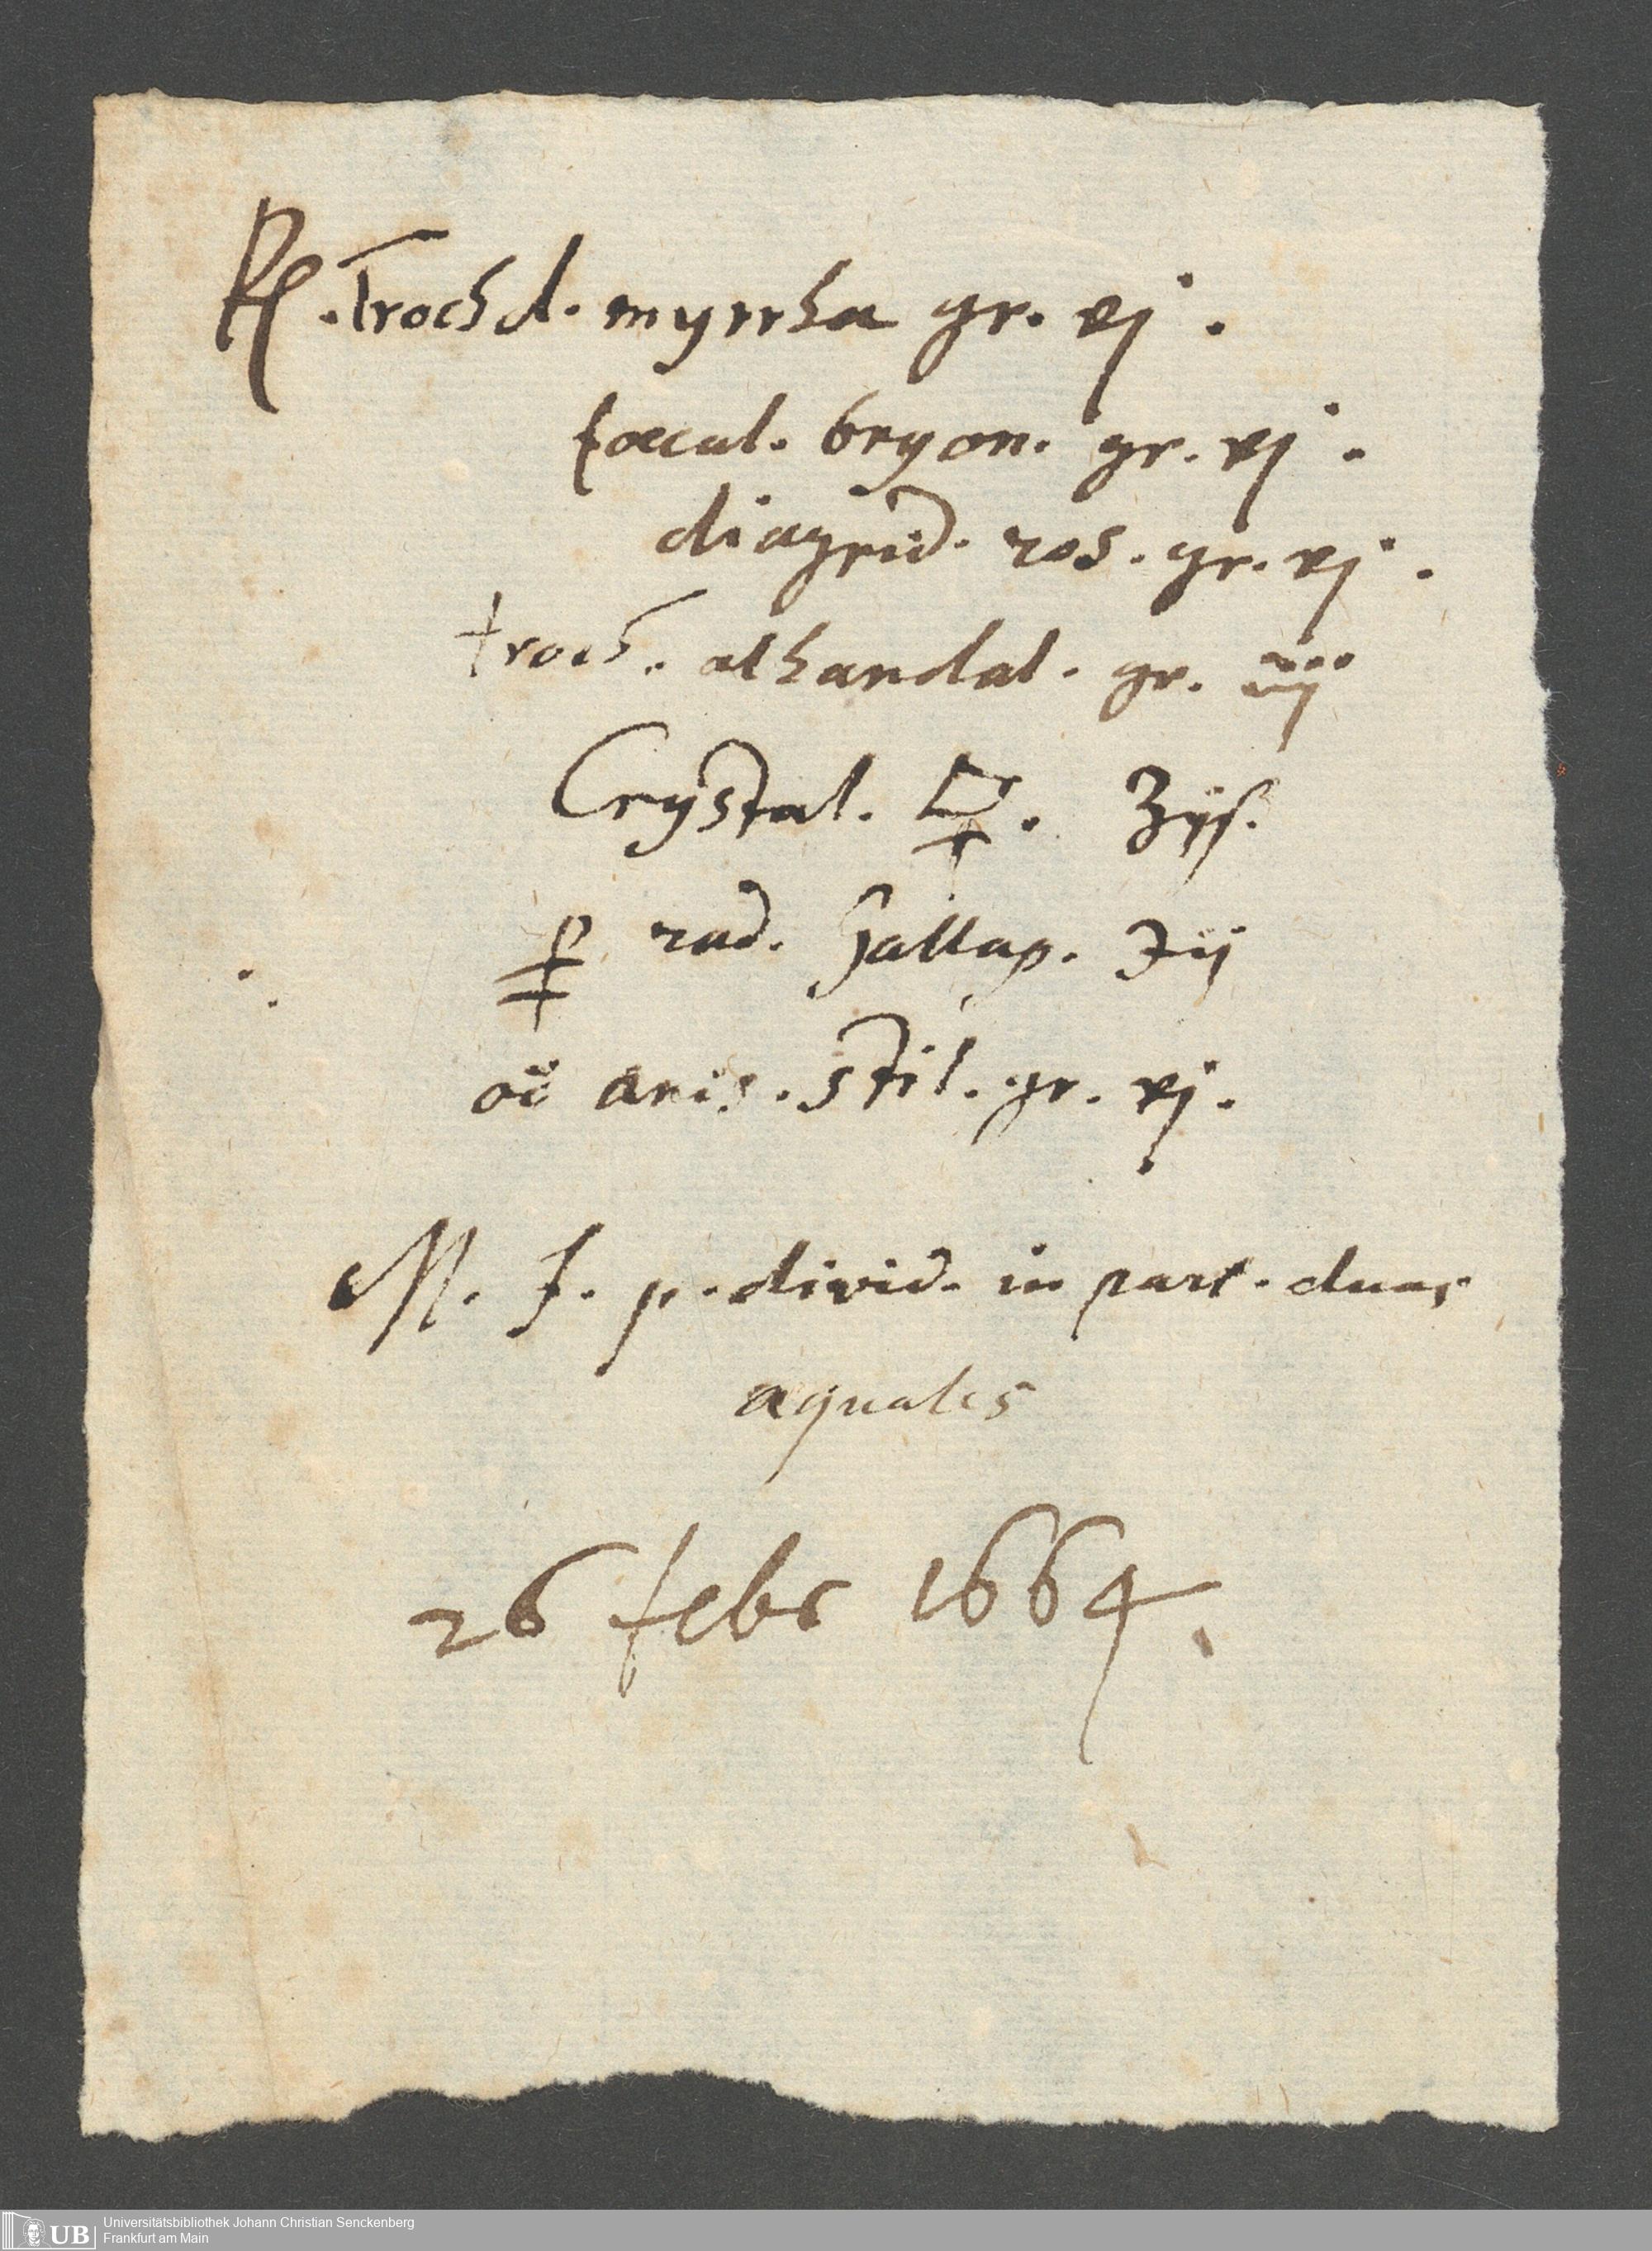 ℞. Troch d. myrrha gr. vj.
fœcul. bryon. gr. vj.
diagrid. ros. gr. vj.
troch. alhandal. gr. iij
Crystal. 🜿. ʒijß.
rad. Jallap. ℈ij
ol anis. stil. gr. vj.
M. f. p. divid. in part. duas
aquales
26 febr 1664.
UB Universitätsbibliothek Johann Christian Senckenberg
Frankfurt am Main